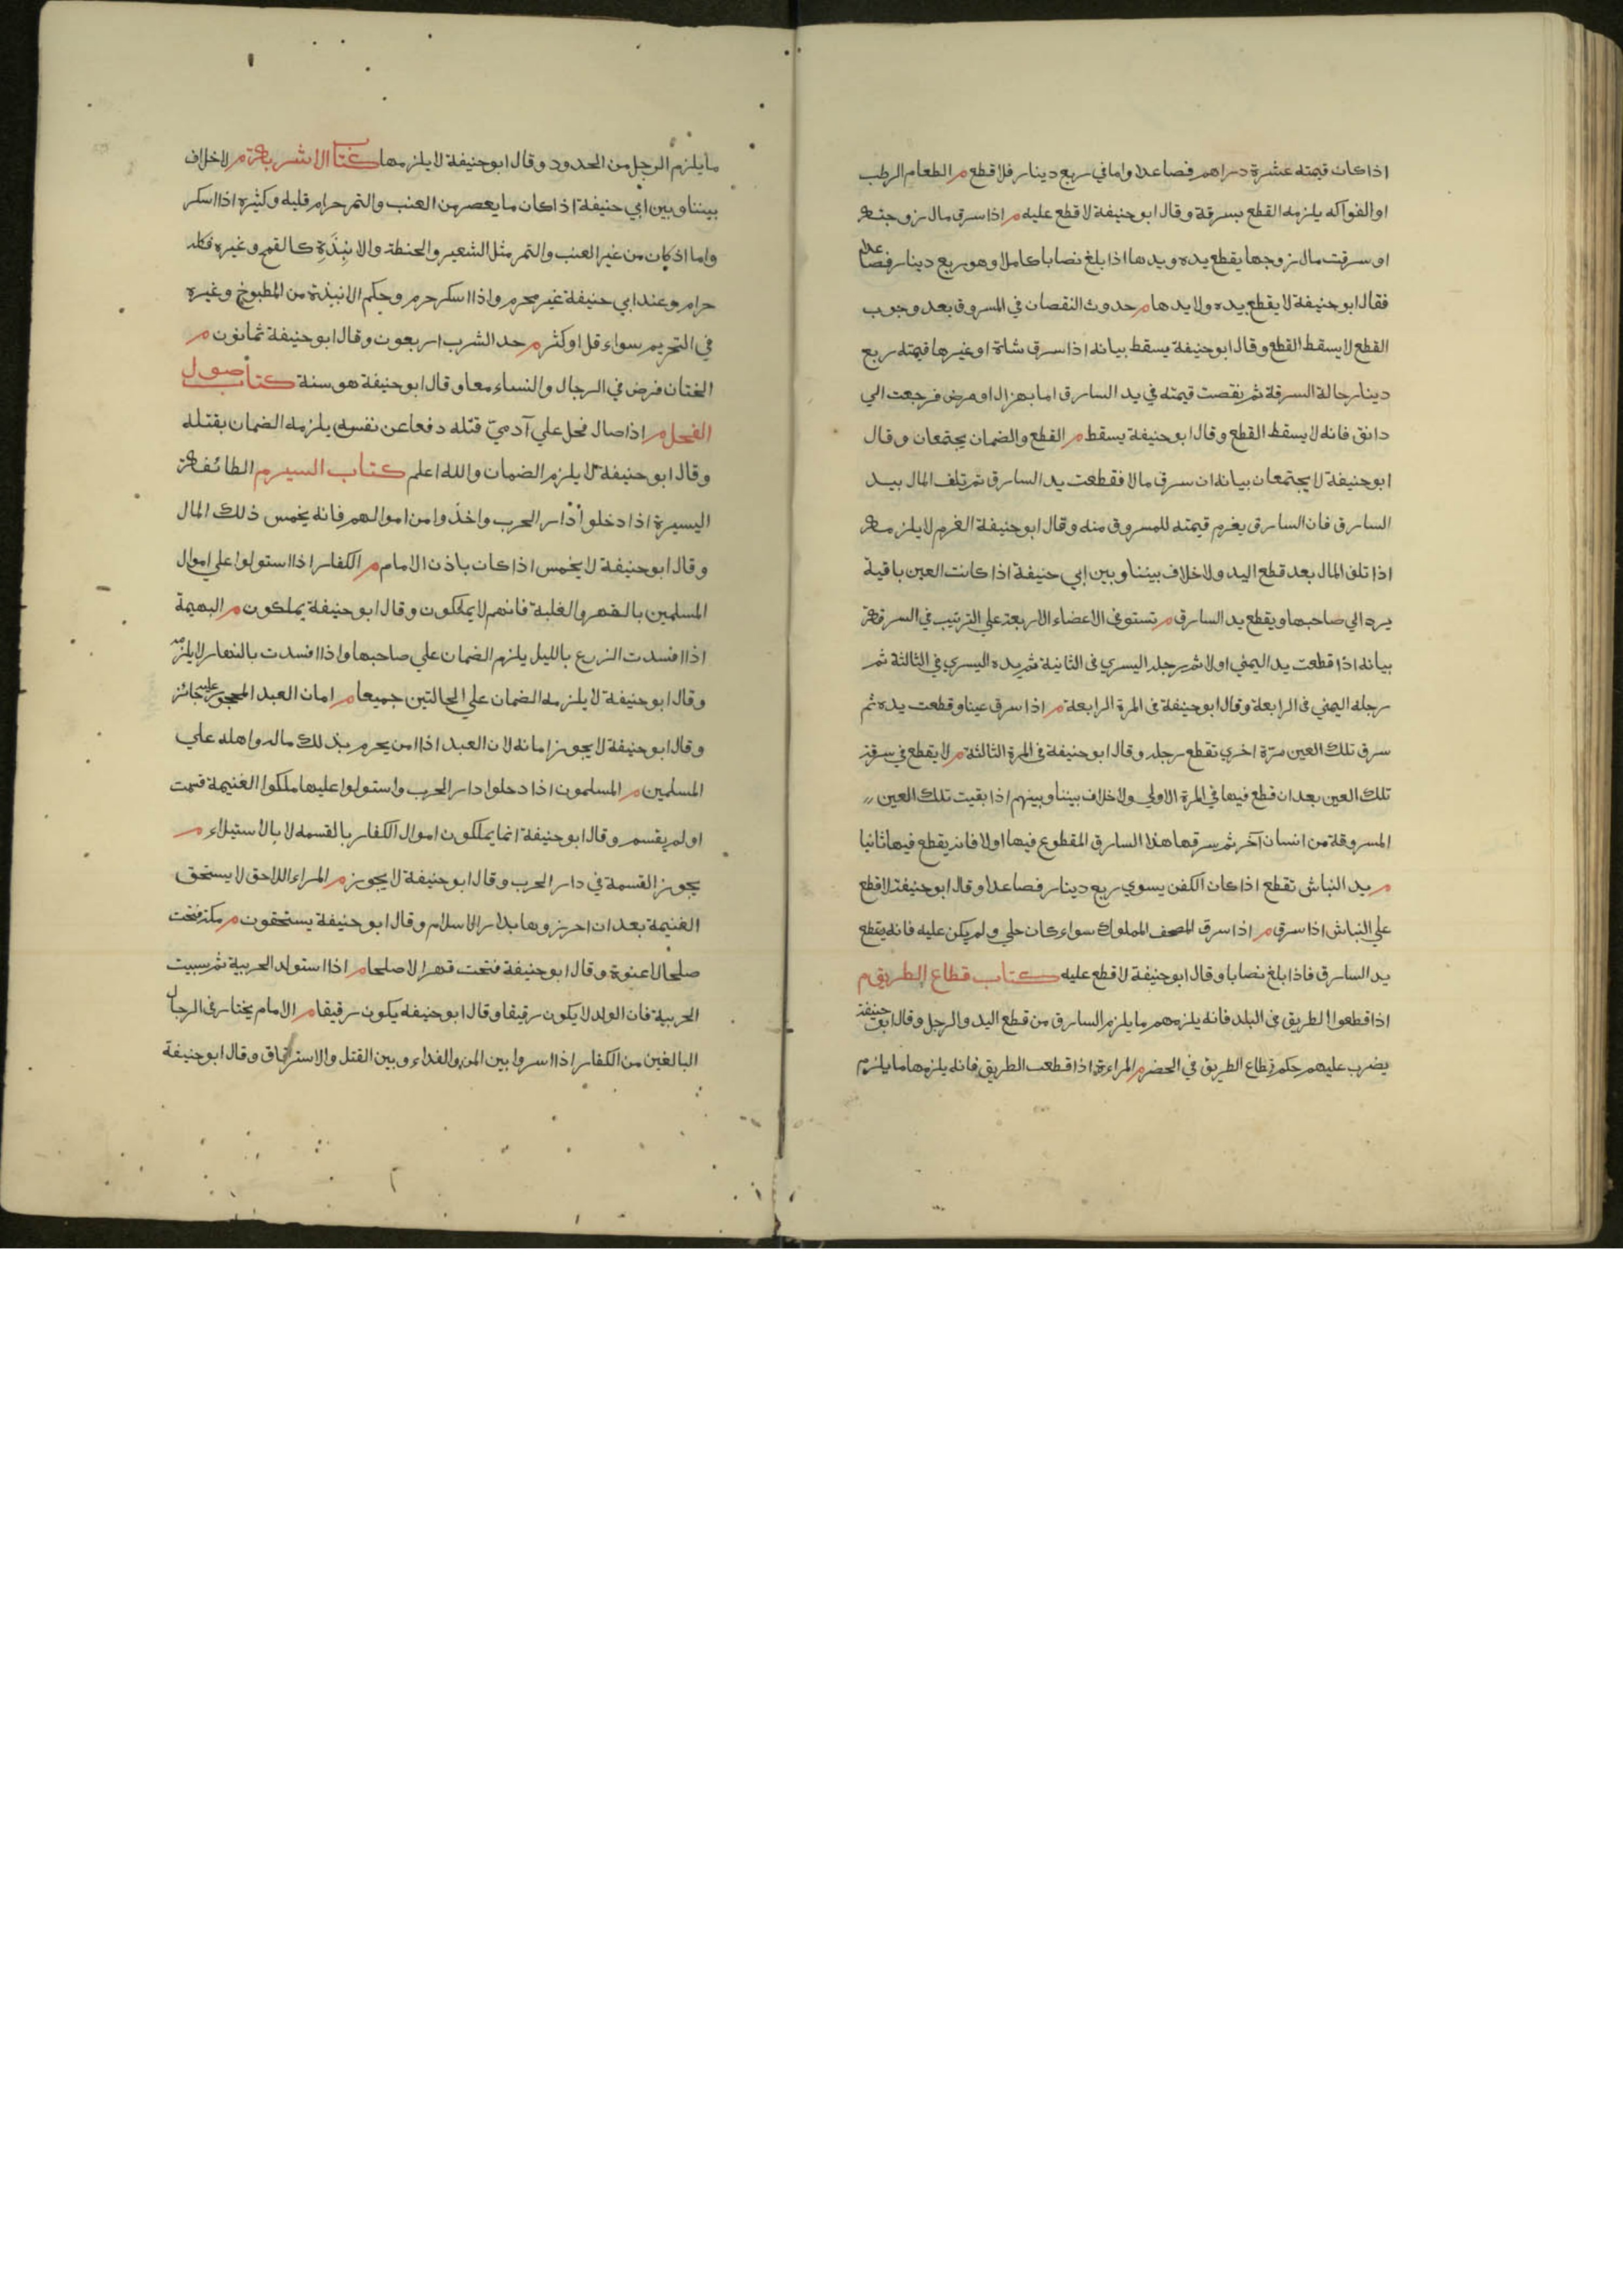 اذا كان قيمته عشرة دراهم فصاعدا واما في ربع دينار فلا قطع م الطعام الرطب
او الفواكه يلزمه القطع بسرقة وقال ابو حنيفة لا قطع عليه م اذا سرق مال زوجته
او سرقت مال زوجها يقطع يده ويدها اذا بلغ نصابا كاملا وهو ربع دينار فصاعدا
فقال ابو حنيفة لا يقطع يده ولا يدها م حدوث النقصان في المسروق بعد وجوب
القطع لا يسقط القطع وقال ابو حنيفة يسقط بيانه اذا سرق شاة او غيرها قيمته ربع
دينار حالة السرقة ثم نقصت قيمته في يد السارق اما بهزال او مرض فرجعت الي
دانق فانه لا يسقط القطع وقال ابو حنيفة يسقط م القطع والضمان يجتمعان وقال
ابو حنيفة لا يجتمعان بيانه ان سرق مالا فقطعت يد السارق ثم تلف المال بيد
السارق فان السارق يغرم قيمته للمسروق منه وقال ابو حنيفة الغرم لا يلزمه
اذا تلف المال بعد قطع اليد ولا خلاف بيننا وبين ابي حنيفة اذا كانت العين باقية
يرد الي صاحبها ويقطع يد السارق م تستوفي الاعضاء الاربعة علي الترتيب في السرقة
بيانه اذا قطعت يد اليمني اولا ثم رجله اليسري في الثانية ثم يده اليسري في الثالثة ثم
رجله اليمني في الرابعة وقال ابو حنيفة في المرة الرابعة م اذا سرق عينا وقطعت يده ثم
سرق تلك العين مرّة اخري تقطع رجله وقال ابو حنيفة في المرة الثالثة م لا يقطع في سرقة
تلك العين بعد ان قطع فيها في المرة الاولي ولا خلاف بيننا وبينهم اذا بقيت تلك العين
المسروقة من انسان آخر ثم سرقها هذا السارق المقطوع فيها اولا فانه يقطع فيها ثانيا
م يد النباش تقطع اذا كان الكفن يسوي ربع دينار فصاعدا وقال ابو حنيفة لا قطع
علي النباش اذا سرق م اذا سرق المصحف المملوك سواء كان حلي ولم يكن عليه فانه يقطع
يد السارق فاذا بلغ نصابا وقال ابو حنيفة لا قطع عليه كتاب قطاع الطريق م
اذا قطعوا الطريق في البلد فانه يلزمهم ما يلزم السارق من قطع اليد والرجل وقال ابو حنيفة
يضرب عليهم حكم قطاع الطريق في الحضر م المراءة اذا قطعت الطريق فانه يلزمها ما يلزم
ما يلزم الرجل من الحدود وقال ابو حنيفة لا يلزمها كتاب الاشربة م لا خلاف
بيننا وبين ابي حنيفة اذا كان ما يعصر من العنب والتمر حرام قليله وكثيره اذا اسكر
واما اذ كان من غير العنب والتمر مثل الشعير والحنطة والانبذة كالقمح وغيره فكله
حرام وعند ابي حنيفة غير محرم واذا اسكر حرم وحكم الانبذة من المطبوخ وغيره
في التحريم سواء قل او كثر م حد الشرب اربعون وقال ابو حنيفة ثمانون م
الختان فرض في الرجال والنساء معا وقال ابو حنيفة هو سنة كتاب صول
الفحل م اذا صال فحل علي آدميّ قتله دفعا عن نفسه يلزمه الضمان بقتله
وقال ابو حنيفة لا يلزم الضمان والله اعلم كتاب السير م الطائفة
اليسيرة اذا دخلوا دار الحرب واخذوا من اموالهم فانه يخمس ذلك المال
وقال ابو حنيفة لا يخمس اذا كان باذن الامام م الكفار اذا استولوا علي اموال
المسلمين بالقهر والغلبة فانهم لا يملكون وقال ابو حنيفة يملكون م البهيمة
اذا افسدت الزرع بالليل يلزم الضمان علي صاحبها واذا افسدت بالنهار لا يلزمه
وقال ابو حنيفة لا يلزمه الضمان علي الحالتين جميعا م امان العبد المحجور عليه جائز
وقال ابو حنيفة لا يجوز امانه لان العبد اذا امن يحرم بذلك ماله واهله علي
المسلمين م المسلمون اذا دخلوا دار الحرب واستولوا عليها ملكوا الغنيمة قسمت
او لم يقسم وقال ابو حنيفة انما يملكون اموال الكفار بالقسمه لا بالاستيلاء م
يجوز القسمة في دار الحرب وقال ابو حنيفة لا يجوز م المراء اللاحق لا يستحق
الغنيمة بعد ان احرزوها بدار الاسلام وقال ابو حنيفة يستحقون م مكة فتحت
صلحا لا عنوة وقال ابو حنيفة فتحت قهرا لا صلحا م اذا استولد الحربية ثم سبيت
الحربية فان الولد لا يكون رقيقا وقال ابو حنيفه يكون رقيقا م الامام يختار في الرجال
البالغين من الكفار اذا اسروا بين المن والفداء وبين القتل والاسترقاق وقال ابو حنيفة